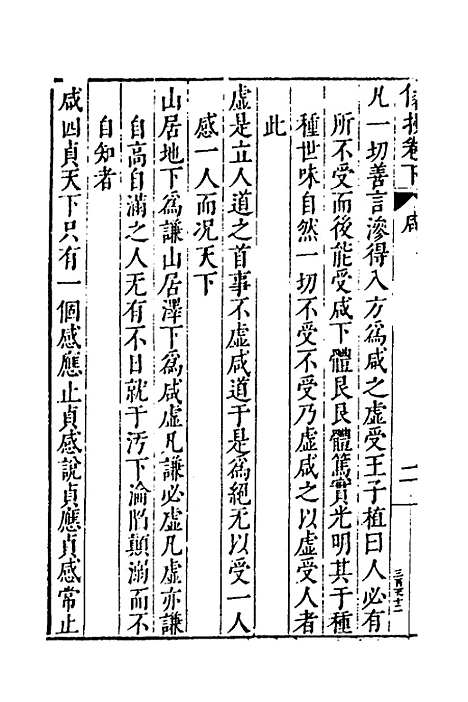 凡一切善言滲得入方爲咸之虛受王子植曰人必有
所不受而後能受咸下體艮艮體篤實光明其于種
種世味自然一切不受不受乃虛咸之以虛受人者
此
虛是立人道之首事不虛咸道于是爲絕无以受一人
感一人而况天下
山居地下爲謙山居澤下爲咸虛凡謙必虛凡虛亦謙
自高自滿之人无有不日就于汚下淪陷顛溺而不
自知者
咸四貞天下只有一個感應止貞感說貞應貞感常止